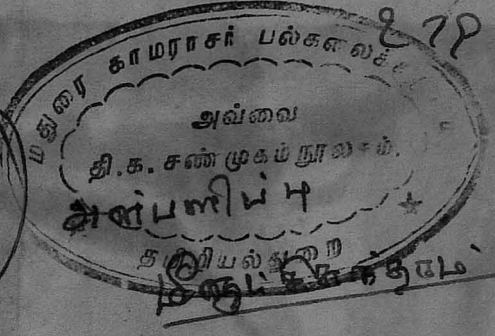 மதுரை காமராசர் பல்கலைக்
அவ்வை
தி.க. சண்முகம் நூலகம்.
அன்பளிப்பு
தமிழியல்துறை